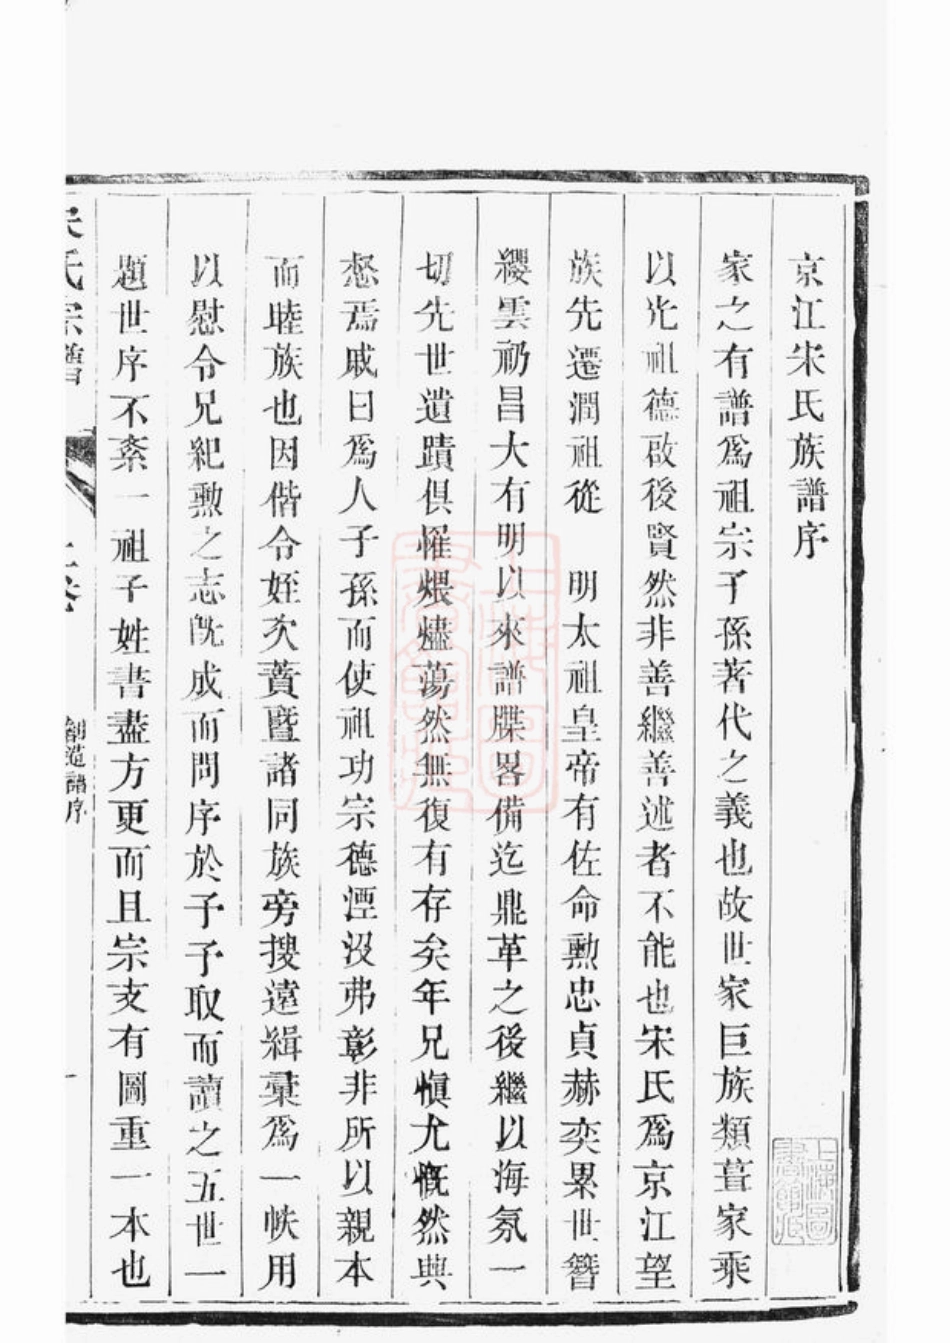 京江宋氏族譜序
家之有譜爲祖宗子孫著代之義也故世家巨族類葺家乘
以光祖德啟後賢然非善繼善述者不能也宋氏爲京江望
族先遷潤祖從　明太祖皇帝有佐命勲忠貞赫奕累世簪
纓雲礽昌大有明以來譜牒畧備迄鼎革之後繼以海氛一
切先世遺蹟俱罹煨燼蕩然無復有存矣年兄愼尤慨然與
愁焉戚曰爲人子孫而使祖功宗德湮沒弗彰非所以親本
而睦族也因偕令姪次蕢暨諸同族旁搜遠緝彚爲一帙用
以慰令兄紀勲之志旣成而問序於予予取而讀之五世一
題世序不紊一祖子姓書盡方更而且宗支有圖重一本也
宋氏宗譜
上卷
創造譜序
一
上海圖書館藏